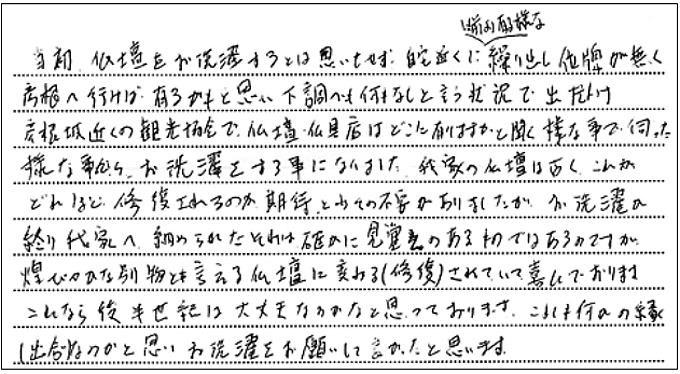 当初、仏壇をお洗濯するとは思いもせず、自宅近くに繰り出し位牌が無く
彦根へ行けば有るかもと思い下調べも何もなしと言う状況で出かけ
彦根城近くの観光協会で、仏壇・仏具店はどこに有りますかと聞く様な事で伺った
様な事から、お洗濯をする事になりました。我家の仏壇は古く、これが
どれほど修復されるのか期待と少々の不安がありましたが、お洗濯が
終り我家へ納められたそれは確かに見覚えのある物ではあるのですが
煌びやかな別物とも言える仏壇に変わる(修復)されていて喜んでおります
これなら後半世紀は大丈夫なのかなと思っております。これも何かの縁
出会なのかと思いお洗濯をお願いして良かったと思います。